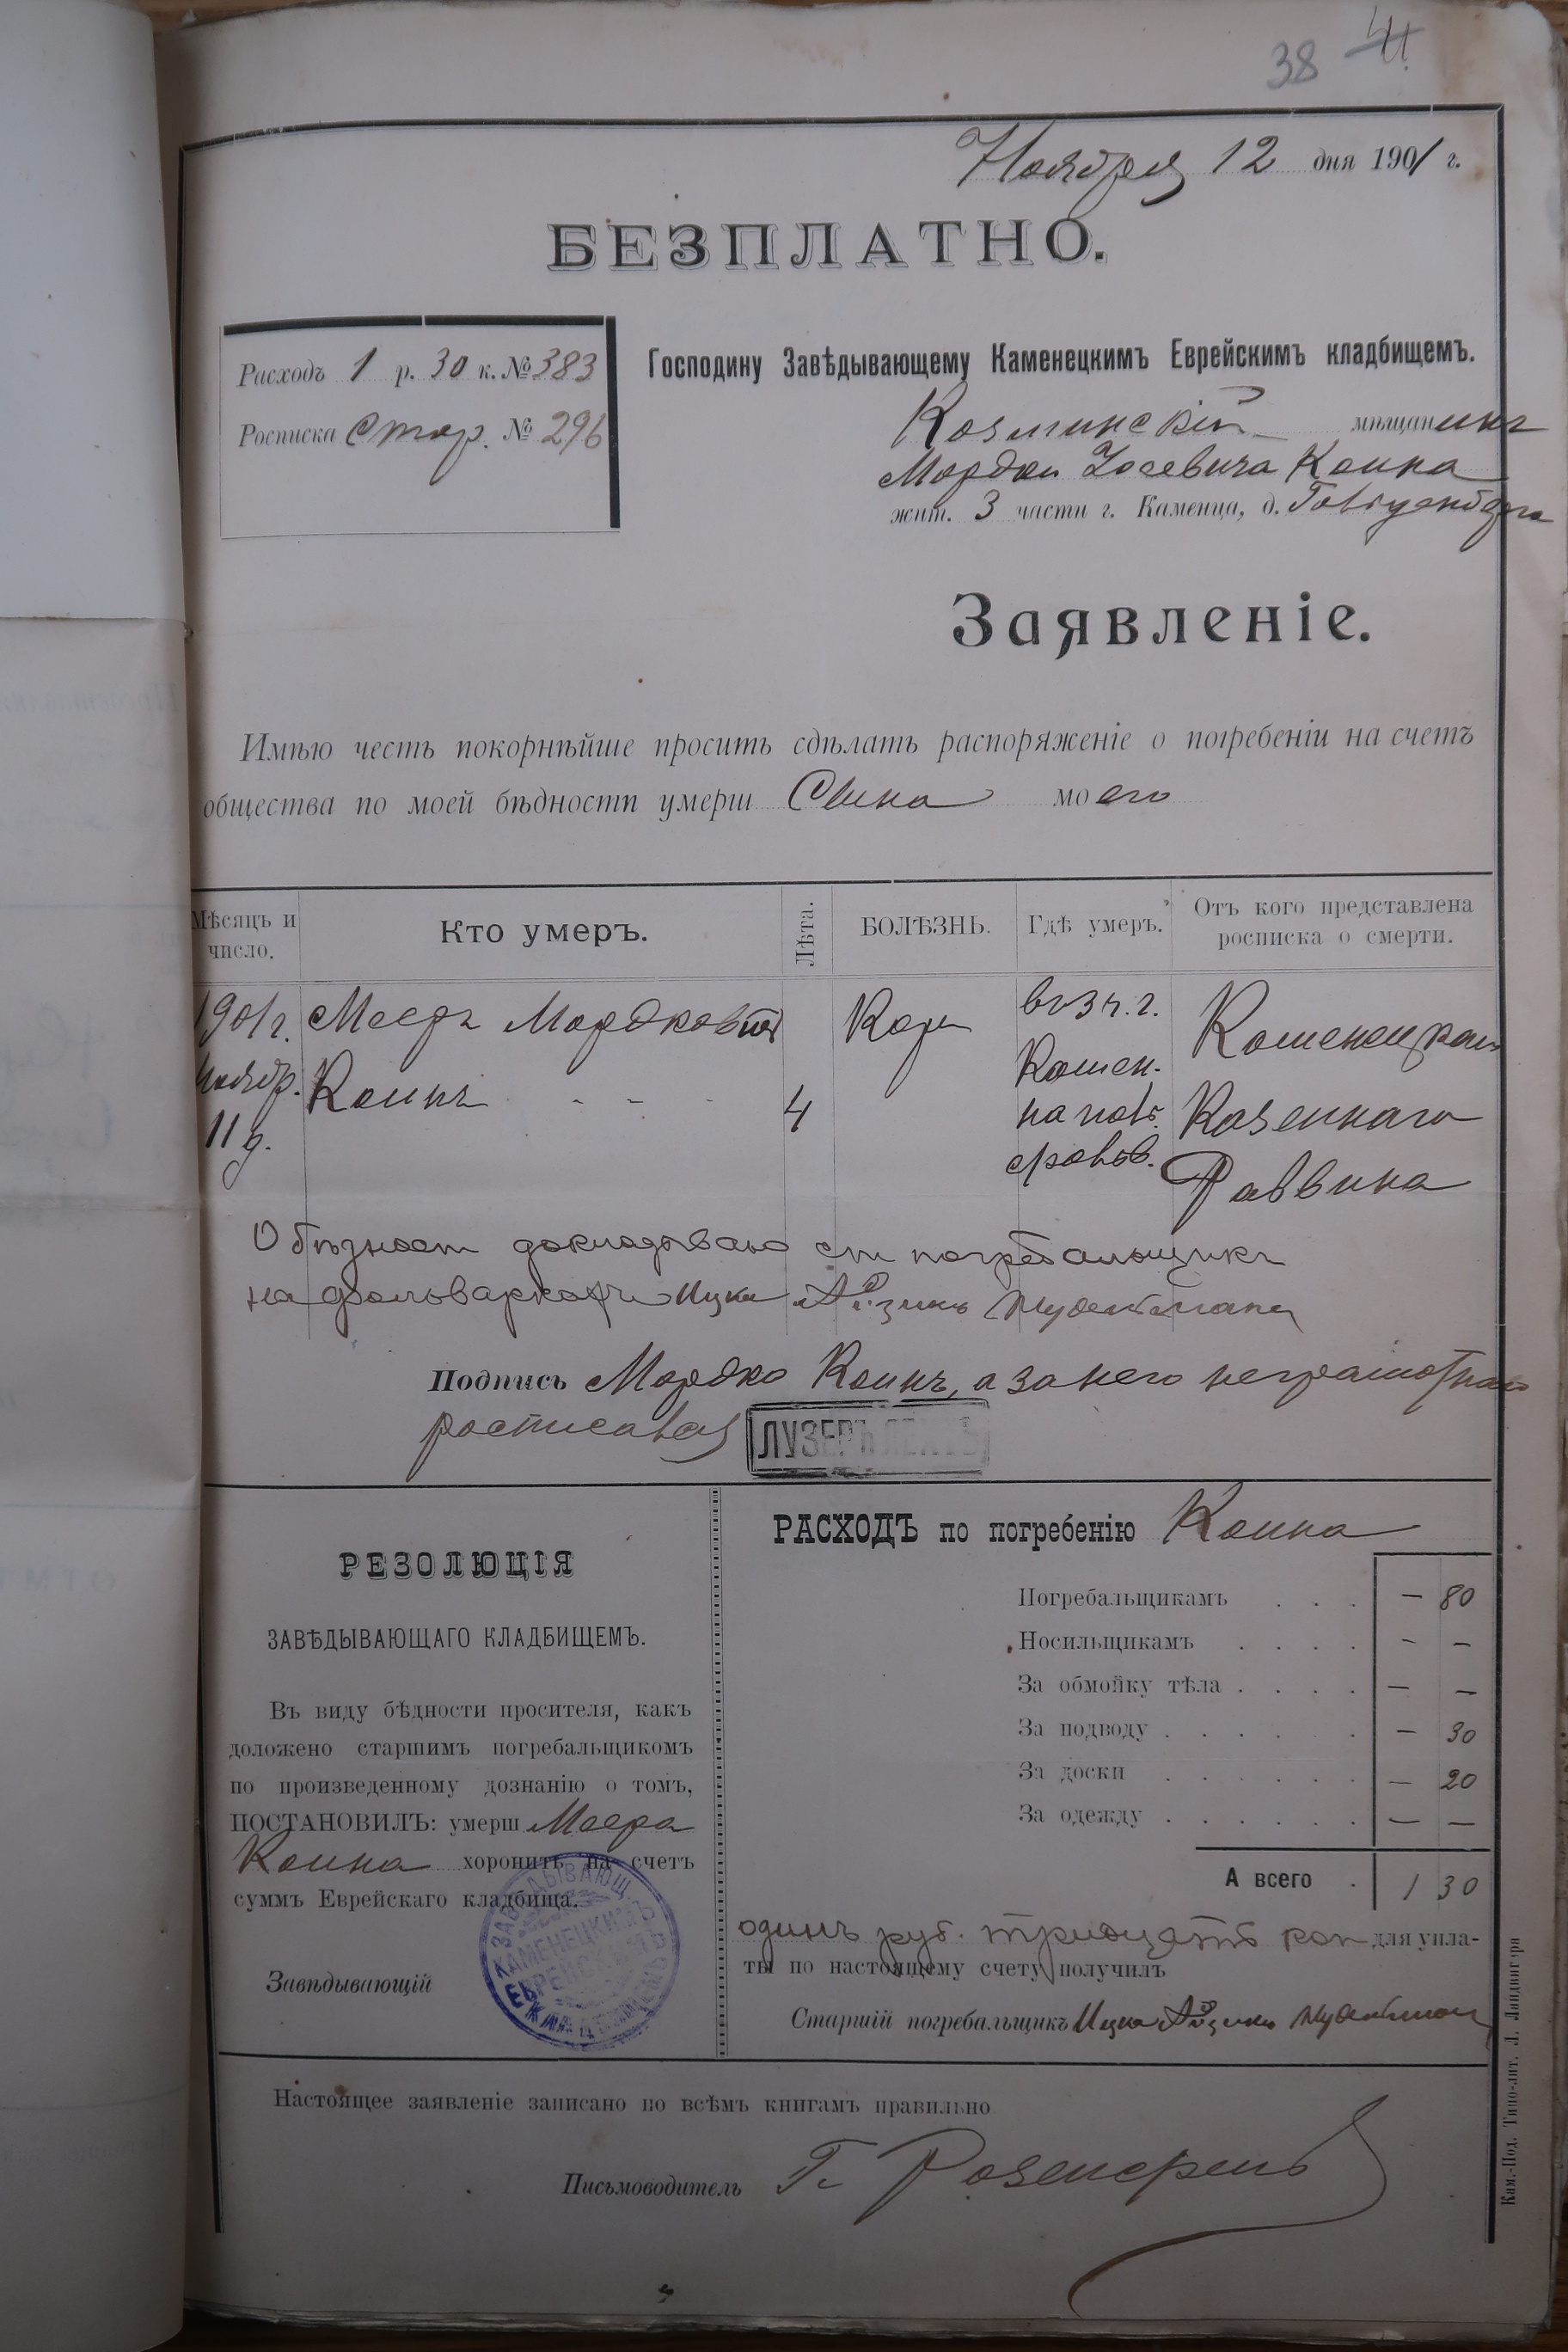 38 41
Ноября 12 дня 1901 г.
БЕЗПЛАТНО.
Расходъ 1 р. 30 к. № 383
Росписка Стар. № 296
Господину Завѣдывающему Каменецкимъ Еврейскимъ кладбищемъ.
мѣщанина
Мордки Іосевича Коина
жит. 3 части г. Каменца, д.
Заявленіе.
Имѣю честь покорнѣйше просить сдѣлать распоряженіе о погребеніи на счетъ
общества по моей бѣдности умерш Сына моего
Мѣсяцъ и число.
Кто умеръ.
Лѣта.
БОЛѢЗНЬ.
Гдѣ умеръ.
Отъ кого представлена росписка о смерти.
1901 г. Ноябр. 11 д.
Мееръ Мордковъ
Коинъ - - -
4
Корь
въ 3 ч. г.
Камен.
на
Каменецкаго
Казеннаго
Раввина
О бѣдност докладываю ст погребальщикъ
на фольваркахъ Ицко Айзикъ
Подпись Мордко Коинъ, а за него неграмотнаго
росписался ЛУЗЕРЪ
РЕЗОЛЮЦІЯ
ЗАВѢДЫВАЮЩАГО КЛАДБИЩЕМЪ.
Въ виду бѣдности просителя, какъ
доложено старшимъ погребальщикомъ
по произведенному дознанію о томъ,
ПОСТАНОВИЛЪ: умерш Меера
Коина хоронить на счетъ
суммъ Еврейскаго кладбища.
Завѣдывающій
ЗАВѢДЫВАЮЩ. КАМЕНЕЦКИМЪ ЕВРЕЙСКИМЪ КЛАДБИЩЕМЪ
РАСХОДЪ по погребенію Коина
Погребальщикамъ . . . — 80
Носильщикамъ . . . . - —
За обмойку тѣла . . . . — —
За подводу . . . . . — 30
За доски . . . . . . — 20
За одежду . . . . . . — —
А всего . 1 30
одинъ руб. тридцать коп для упла-
ты по настоящему счету получилъ
Старшій погребальщикъ Ицко Айзикъ
Настоящее заявленіе записано по всѣмъ книгамъ правильно
Письмоводитель Г.
Кам.-Под. Типо-лит. Л. Ландвигера